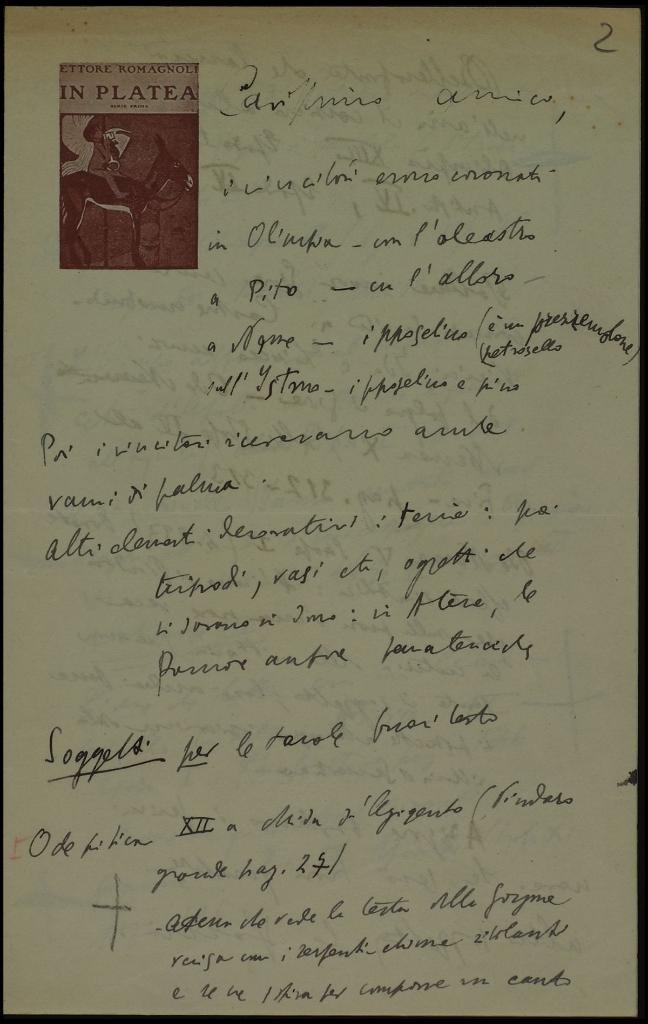 2
ETTORE ROMAGNOLI
IN PLATEA
SERIE PRIMA
Carissimo amico,
i vincitori erano coronati
in Olimpia – con l'oleastro
a Pito — con l'alloro –
a Neme – ipposelino (è un prezzemolone)
petrosello
sull'Istmo – ipposelino e pino
Poi i vincitori ricevevano anche
rami di palma.
Altri elementi decorativi: tenie: poi
tripodi, vasi etc, oggetti che
si davano in dono: in Atene, le
famose anfore panatenaiche
Soggetti per le tavole fuori testo
Ode pitica XII a Mida d'Agrigento (Pindaro
grande pag. 27)
Atena che vede la testa della Gorgone
recisa con i serpenti-chiome sibilanti
e se ne ispira per comporre un canto